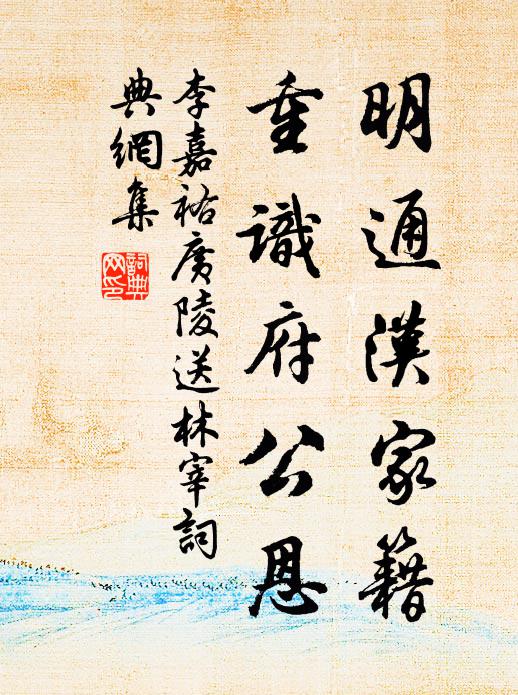 明通漢家籍
重識府公恩
李嘉祐廣陵送林宰詞
典網集
詞典
网印